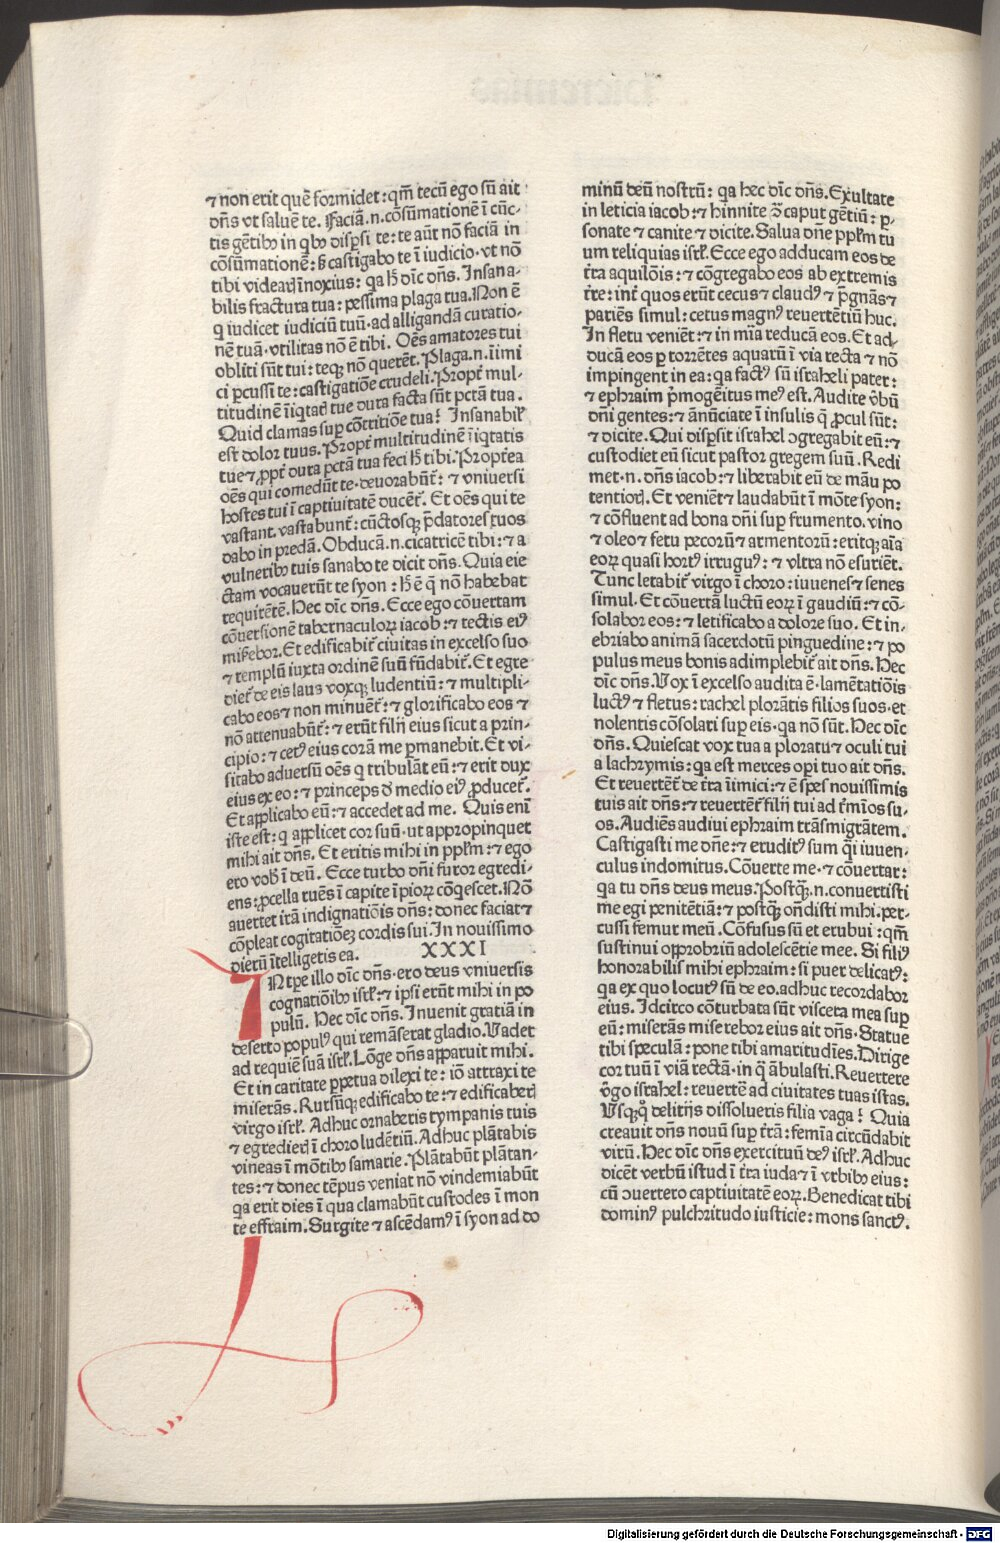 ⁊ non erit quē formidet: qm̄ tecū ego sū ait
dn̄s vt saluē te. Faciā.n.cōsūmationē ī cūc-
tis gētibꝫ in qͥbꝫ disꝑsi te: te aūt nō faciā in
cōsūmationē: ſꝫ castigabo te ī iudicio.vt nō
tibi videarꝭ īnoxius: qa h̄ dīc dn̄s. Insana-
bilis fractura tua: pessima plaga tua. Non ē
q iudicet iudiciū tuū.ad alligandā curatio-
nē tuā.vtilitas nō ē tibi. Oēs amatores tui
obliti sūt tui: teqꝫ nō querēt. Plaga.n.īimi
ci ꝑcussi te: castigatiōe crudeli. Propt̄ mul-
titudinē īiqtatꝭ tue dura facta sūt pctā tua.
Quid clamas suꝑ cōtritiōe tua? Insanabil̄
est dolor tuus. Propt̄ multitudinē īiqtatis
tue ⁊ ꝓpt̄ dura pctā tua feci h̄ tibi. Propt̄ea
oēs qui comedūt te.deuorabūt̄: ⁊ vniuersi
hostes tui ī captiuitatē ducēt̄. Et oēs qui te
vastant.vastabunt̄: cūctosqꝫ p̄datores tuos
dabo in predā. Obducā.n.cicatricē tibi: ⁊ a
vulneribꝫ tuis sanabo te dicit dn̄s. Quia eie
ctam vocauerūt te syon: h̄ ē q̄ nō habebat
requirētē. Hec dīc dn̄s. Ecce ego cōuertam
cōuersionē tabernaculoꝝ iacob: ⁊ tectis eiꝰ
miẜebor. Et edificabit̄ ciuitas in excelso suo
⁊ templū iuxta ordinē suū fūdabit̄. Et egre
diet̄ de eis laus voxqꝫ ludentiū: ⁊ multipli-
cabo eos ⁊ non minuēt̄: ⁊ glorificabo eos ⁊
nō attenuabūt̄: ⁊ erūt filii eius sicut a prin-
cipio: ⁊ cetꝰ eius corā me ꝑmanebit. Et vi-
sitabo aduersū oēs q tribulāt eū: ⁊ erit dux
eius ex eo: ⁊ princeps d̄ medio eiꝰ ꝓducet̄.
Et applicabo eū: ⁊ accedet ad me. Quis enī
iste est: q applicet cor suū.ut appropinquet
mihi ait dn̄s. Et eritis mihi in pplm̄: ⁊ ego
ero vob̄ ī deū. Ecce turbo dn̄i furor egredi-
ens: ꝓcella ruēs ī capite īpioꝝ cōqescet. Nō
auertet irā indignatiōis dn̄s: donec faciat ⁊
cōpleat cogitatiōeꝫ cordis sui. In nouissimo
dierū ītelligetis ea. XXXI
INtꝑe illo dīc dn̄s.ero deus vniuersis
cognatiōibꝫ isrl̄: ⁊ ipsi erūt mihi in po
pulū. Hec dīc dn̄s. Inuenit gratiā in
deserto populꝰ qui remāserat gladio. Vadet
ad requiē suā isrl̄. Lōge dn̄s apparuit mihi.
Et in caritate ꝑpetua dilexi te: iō attraxi te
miserās. Rursūqꝫ edificabo te: ⁊ edificaberꝭ
virgo isrl̄. Adhuc ornaberis tympanis tuis
⁊ egredierꝭ ī choro ludētiū. Adhuc plātabis
vineas ī mōtibꝫ samarie. Plātabūt plātan-
tes: ⁊ donec tēpus veniat nō vindemiabūt
qa erit dies ī qua clamabūt custodes ī mon
te effraim. Surgite ⁊ ascēdamꝰ ī syon ad do
minū deū nostrū: qa hec dīc dn̄s. Exultate
in leticia iacob: ⁊ hinnite ɔ̄ caput gētiū: ꝑ-
sonate ⁊ canite ⁊ dicite. Salua dn̄e pplm̄ tu
um reliquias isrl̄. Ecce ego adducam eos de
t̄ra aquilōis: ⁊ cōgregabo eos ab extremis
t̄re: int̄ quos erūt cecus ⁊ claudꝰ ⁊ p̄gnās ⁊
pariēs simul: cetus magnꝰ reuertētiū huc.
In fletu veniēt: ⁊ in mīa reducā eos. Et ad-
ducā eos ꝑ torrētes aquarū ī via recta ⁊ nō
impingent in ea: qa factꝰ sū israheli pater:
⁊ ephraim p̄mogēitus meꝰ est. Audite v̄bū
dn̄i gentes: ⁊ ānūciate ī insulis q̄ ꝓcul sūt:
⁊ dicite. Qui disꝑsit israhel ɔgregabit eū: ⁊
custodiet eū sicut pastor gregem suū. Redi
met.n.dn̄s iacob: ⁊ liberabit eū de māu po
tentiorꝭ. Et veniēt ⁊ laudabūt ī mōte syon:
⁊ cōfluent ad bona dn̄i suꝑ frumento.vino
⁊ oleo ⁊ fetu pecorū ⁊ armentorū: eritqꝫ aīa
eoꝝ quasi hortꝰ irriguꝰ: ⁊ vltra nō esuriēt.
Tunc letabit̄ virgo ī choro: iuuenes ⁊ senes
simul. Et cōuertā luctū eoꝝ ī gaudiū: ⁊ cō-
solabor eos: ⁊ letificabo a dolore suo. Et in-
ebriabo animā sacerdotū pinguedine: ⁊ po
pulus meus bonis adimplebit̄ ait dn̄s. Hec
dīc dn̄s. Vox ī excelso audita ē.lamētatiōis
luctꝰ ⁊ fletus: rachel plorātis filios suos.et
nolentis cōsolari suꝑ eis.qa nō sūt. Hec dīc
dn̄s. Quiescat vox tua a ploratu ⁊ oculi tui
a lachrymis: qa est merces oꝑi tuo ait dn̄s.
Et reuertēt̄ de t̄ra īimici: ⁊ ē spes nouissimis
tuis ait dn̄s: ⁊ reuertēt̄ filii tui ad t̄mīos su-
os. Audiēs audiui ephraim trāsmigrātem.
Castigasti me dn̄e: ⁊ eruditꝰ sum q̄i iuuen-
culus indomitus. Cōuerte me.⁊ cōuertar:
qa tu dn̄s deus meus. Postqꝫ.n.conuertisti
me egi penitētiā: ⁊ postqꝫ on̄disti mihi.per-
cussi femur meū. Cōfusus sū et erubui: qm̄
sustinui opprobriū adolescētie mee. Si filiꝰ
honorabilis mihi ephraim: si puer delicatꝰ:
qa ex quo locutꝰ sū de eo.adhuc recordabor
eius. Idcirco cōturbata sūt viscera mea suꝑ
eū: miserās miserebor eius ait dn̄s. Statue
tibi speculā: pone tibi amaritudīes. Dirige
cor tuū ī viā rectā.in q̄ ābulasti. Reuertere
v̄go israhel: reuertē ad ciuitates tuas istas.
Vsqꝫq̊ delitiis dissolueris filia vaga? Quia
creauit dn̄s nouū suꝑ t̄rā: femīa circūdabit
virū. Hec dīc dn̄s exercituū deꝰ isrl̄. Adhuc
dicēt verbū istud ī t̄ra iuda ⁊ ī vrbibꝫ eius:
cū ɔuertero captiuitatē eoꝝ. Benedicat tibi
dominꝰ pulchritudo iusticie: mons sanctꝰ.
Digitalisierung gefördert durch die Deutsche Forschungsgemeinschaft - DFG